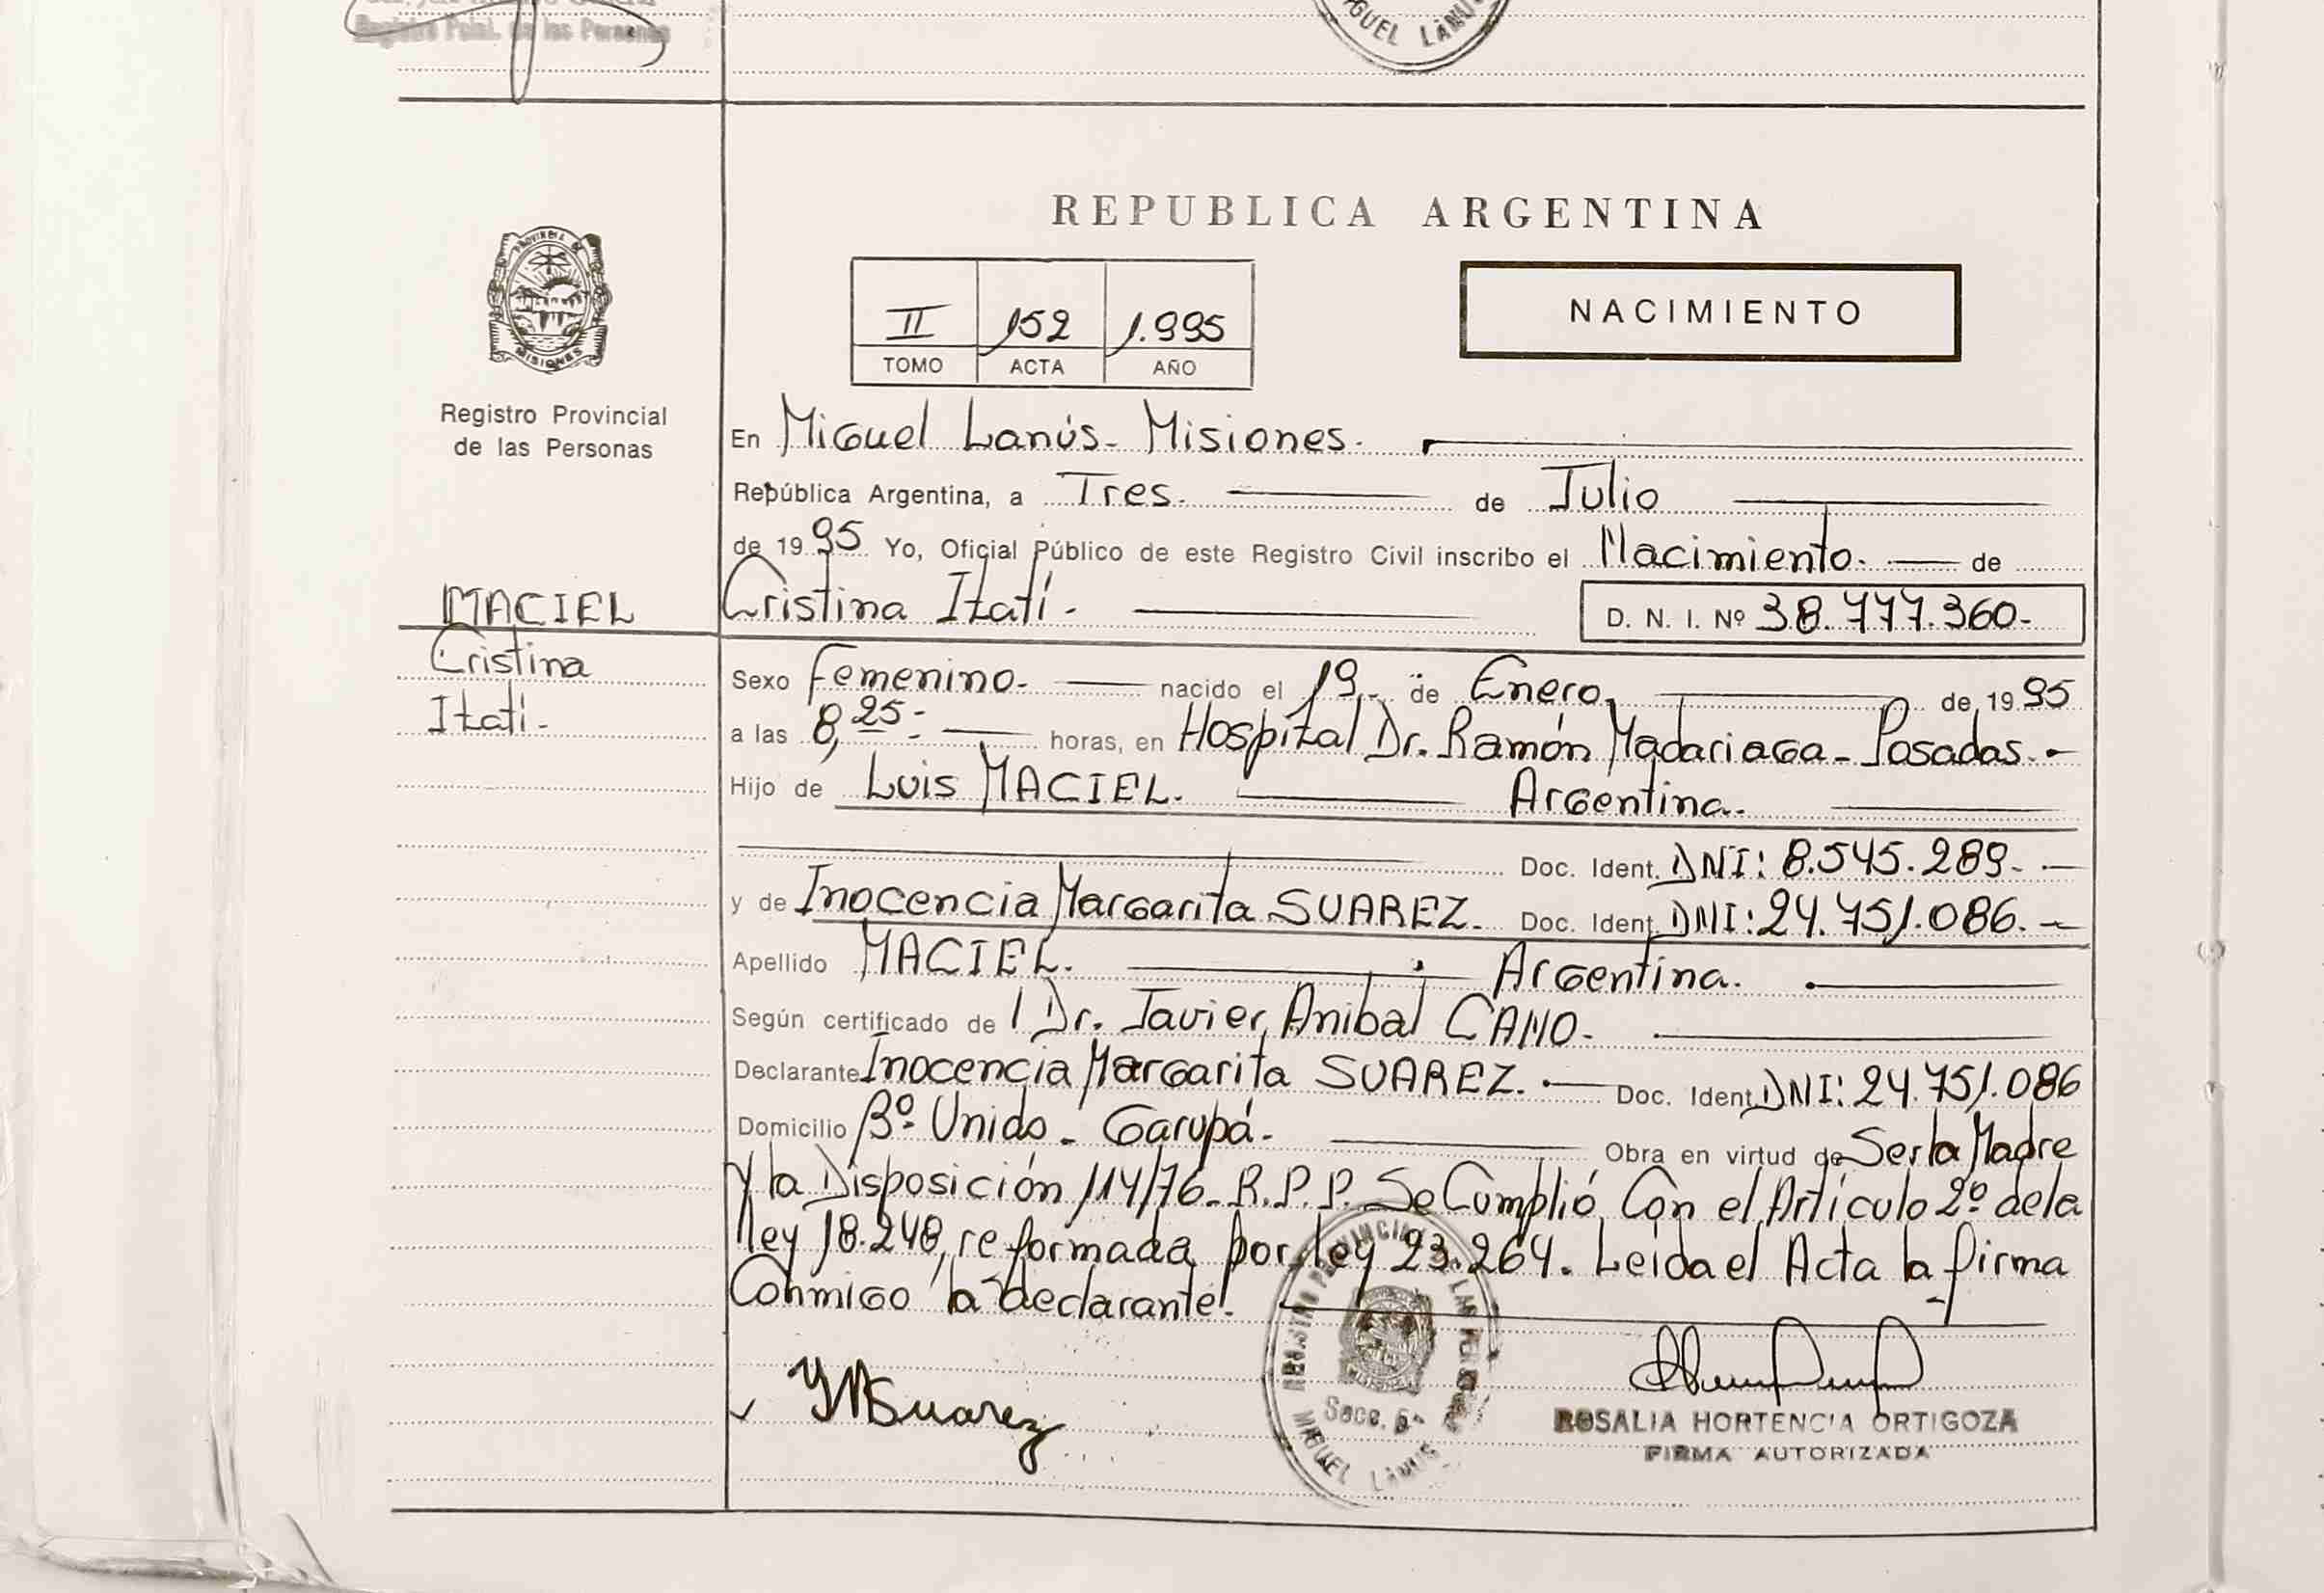 Registro Pcial. de las Personas
MIGUEL LANUS
REPUBLICA ARGENTINA
PROVINCIA DE
MISIONES
Registro Provincial
de las Personas
II 152 1.995
TOMO ACTA AÑO
NACIMIENTO
En Miguel Lanús- Misiones.
República Argentina, a Tres. de Julio
de 1995 Yo, Oficial Público de este Registro Civil inscribo el Nacimiento. de
MACIEL
Cristina
Itatí-
Cristina Itatí-
D. N. I. Nº 38.777.360-
Sexo Femenino- nacido el 19- de Enero. de 1995
a las 8,25- horas, en Hospital Dr. Ramón Madariaga- Posadas.-
Hijo de Luis MACIEL. Argentina.
Doc. Ident. DNI: 8.545.289-
y de Inocencia Margarita SUAREZ. Doc. Ident. DNI: 24.751.086.-
Apellido MACIEL. Argentina.
Según certificado de l Dr. Javier Anibal CANO-
Declarante Inocencia Margarita SUAREZ.- Doc. Ident. DNI: 24.751.086
Domicilio Bº Unido- Garupá- Obra en virtud de Ser la Madre
y la Disposición 114/76- R.P.P. Se Cumplió Con el Artículo 2º de la
ley 18.248, reformada por ley 23.264. Leída el Acta la firma
Conmigo la declarante.
YMSuarez
REGISTRO PROVINCIAL DE LAS PERSONAS
Secc. 5ª
MIGUEL LANUS
ROSALIA HORTENCIA ORTIGOZA
FIRMA AUTORIZADA